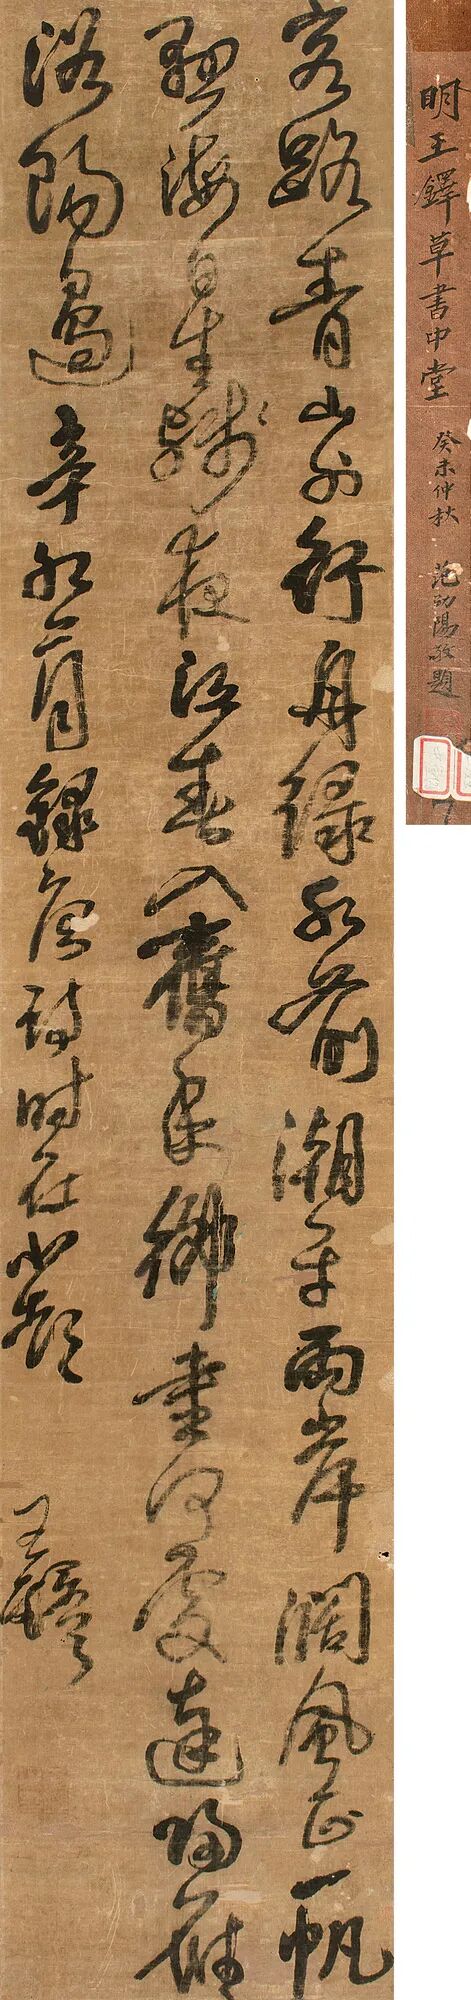 客路青山外行舟綠水前潮平兩岸闊風正一帆
懸海日生殘夜江春入舊年鄉書何處達歸雁
洛陽邊 辛卯六月錄唐詩時在小
王鐸
明王鐸草書中堂 癸未仲秋 范陽敬題